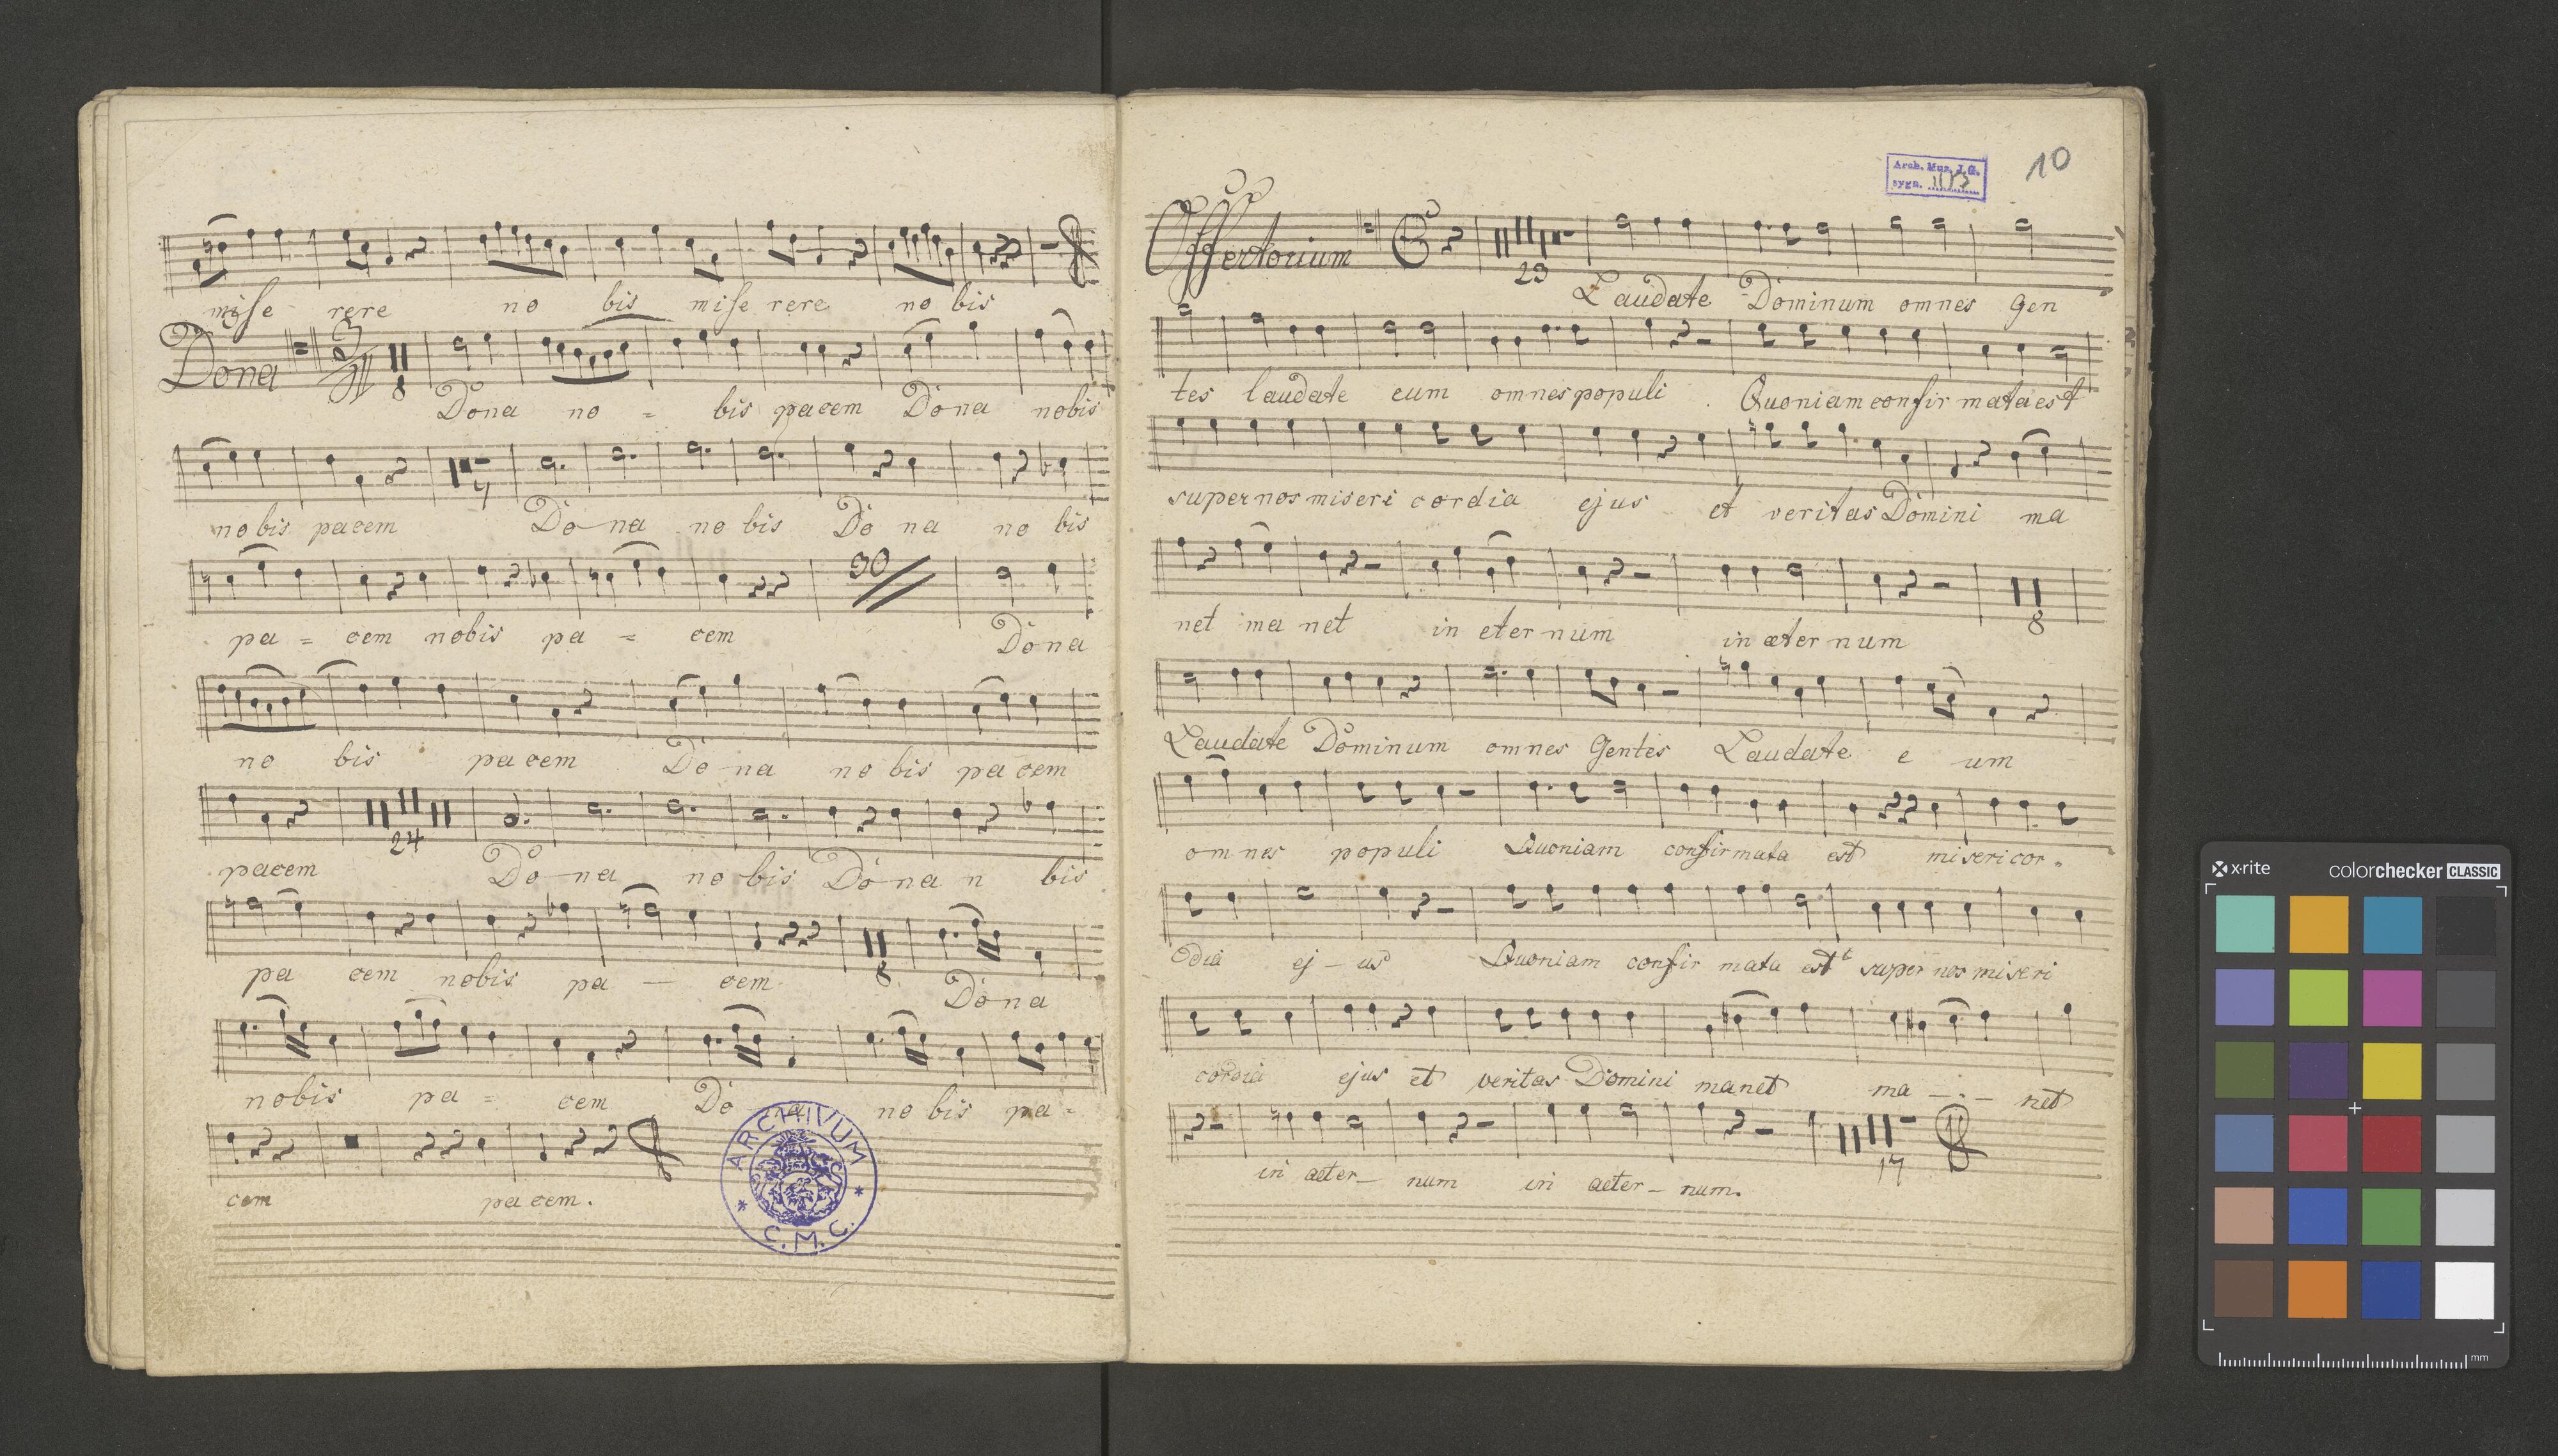 mise rere no bis mise rere no bis
Dona 3/4 8 Dona no = bis pacem Dona nobis
nobis pacem 4 Do-na no bis Do na no bis
30
pa = cem nobis pa = cem Dona
no bis pacem Do-na no bis pacem
24
pacem Do-na no bis Do-na n bis
pa cem nobis pa — cem 8 Dona
nobis pa = cem Do no bis pa =
cem pacem.
ARCHIVUM
* C.M.C. *
Arch. Mus. J.G.
sygn.
10
Offertorium C 23 Laudate Dominum omnes Gen
tes laudate eum omnes populi Quoniam confir mata est
super nos miseri cordia ejus et veritas Domini ma
net ma net in eter num in æter num 8
Laudate Dominum omnes Gentes Laudate e um
omnes populi Quoniam confirmata est misericor-
dia ej - us Quoniam confir mata est super nos miseri
cordia ejus et veritas Domini manet ma - - - net
in aeter- num in aeter- num. 17
x·rite colorchecker CLASSIC
mm